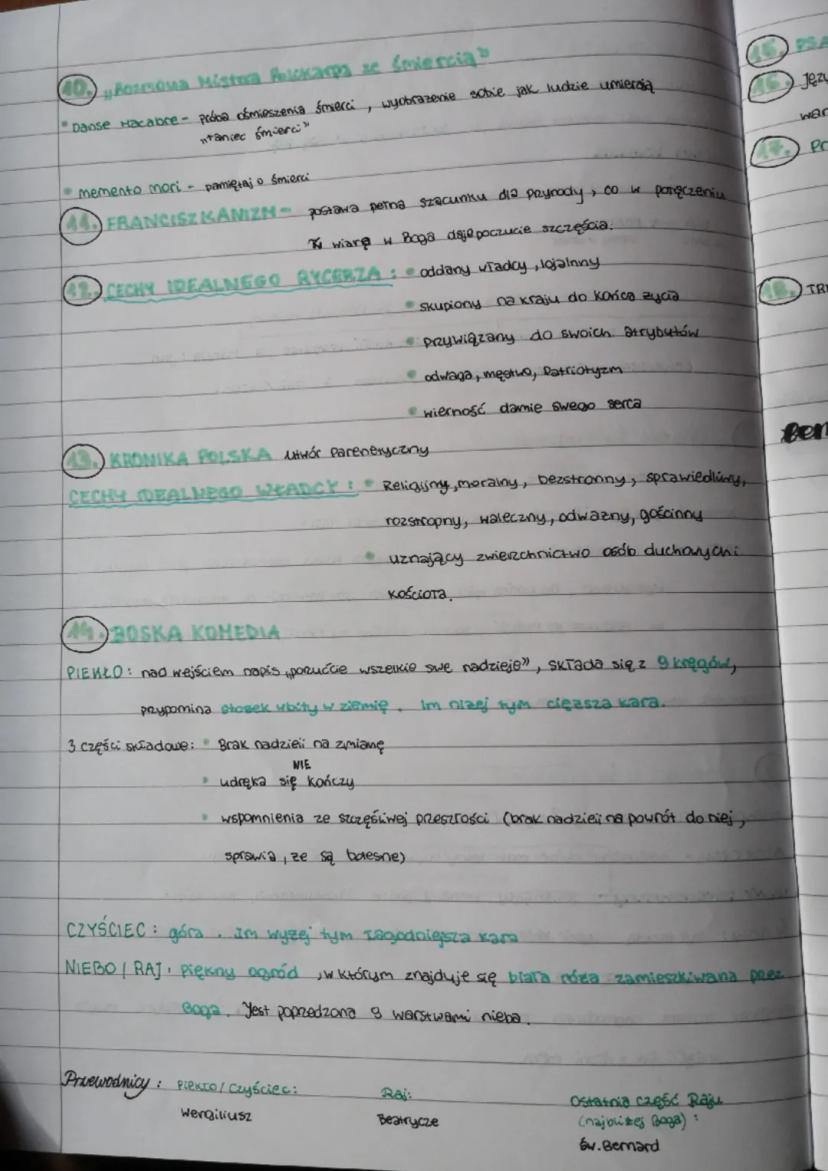 10. „Rozmowa Mistrza Polikarpa ze śmiercią”
• Danse Macabre - próba ośmieszenia śmierci, wyobrażenie sobie jak ludzie umierają
„taniec śmierci”
• memento mori - pamiętaj o śmierci
11. FRANCISZKANIZM - postawa pełna szacunku dla przyrody, co w połączeniu
wiarą w Boga daje poczucie szczęścia.
12. CECHY IDEALNEGO RYCERZA: • oddany władcy, lojalnny
• skupiony na kraju do końca życia
• przywiązany do swoich atrybutów
• odwaga, męstwo, Patriotyzm
• wierność damie swego serca
13. KRONIKA POLSKA utwór parenetyczny
CECHY IDEALNEGO WŁADCY: • Religijny, moralny, bezstronny, sprawiedliwy,
rozstropny, waleczny, odważny, gościnny
• uznający zwierzchnictwo osób duchownych i
Kościoła.
14. BOSKA KOMEDIA
PIEKŁO: nad wejściem napis „porzućcie wszelkie swe nadzieje”, składa się z 9 kręgów,
przypomina stożek wbity w ziemię. Im niżej tym cięższa kara.
3 części składowe: • Brak nadzieii na zmianę
NIE
• udręka się kończy
• wspomnienia ze szczęśliwej przeszłości (brak nadzieii na powrót do niej,
sprawia, że są bolesne)
CZYŚCIEC: góra. Im wyżej tym łagodniejsza kara
NIEBO / RAJ: piękny ogród, w którym znajduje się biała róża zamieszkiwana przez
Boga. Jest poprzedzona 9 warstwami nieba.
Przewodnicy: PIEKŁO / Czyściec: Raj: Ostatnia część Raju
(najbliżej Boga):
Wergiliusz Beatrycze
św. Bernard
15. PSA
16. Języ
war
17.
18.